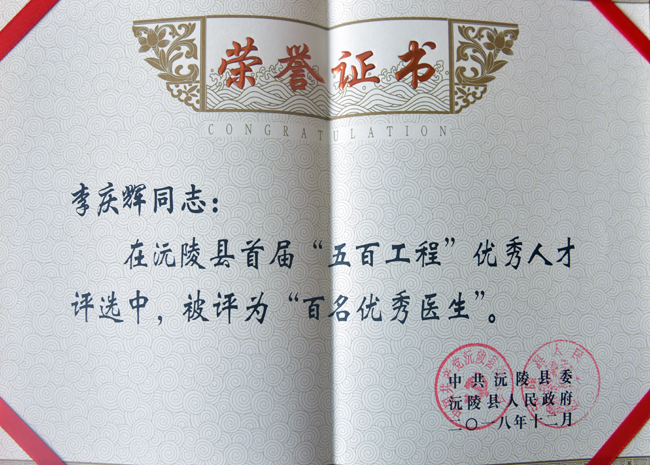 荣誉证书
CONGRATULATION
李庆辉同志：
在沅陵县首届“五百工程”优秀人才
评选中，被评为“百名优秀医生”。
中共沅陵县委
沅陵县人民政府
二〇一八年十二月